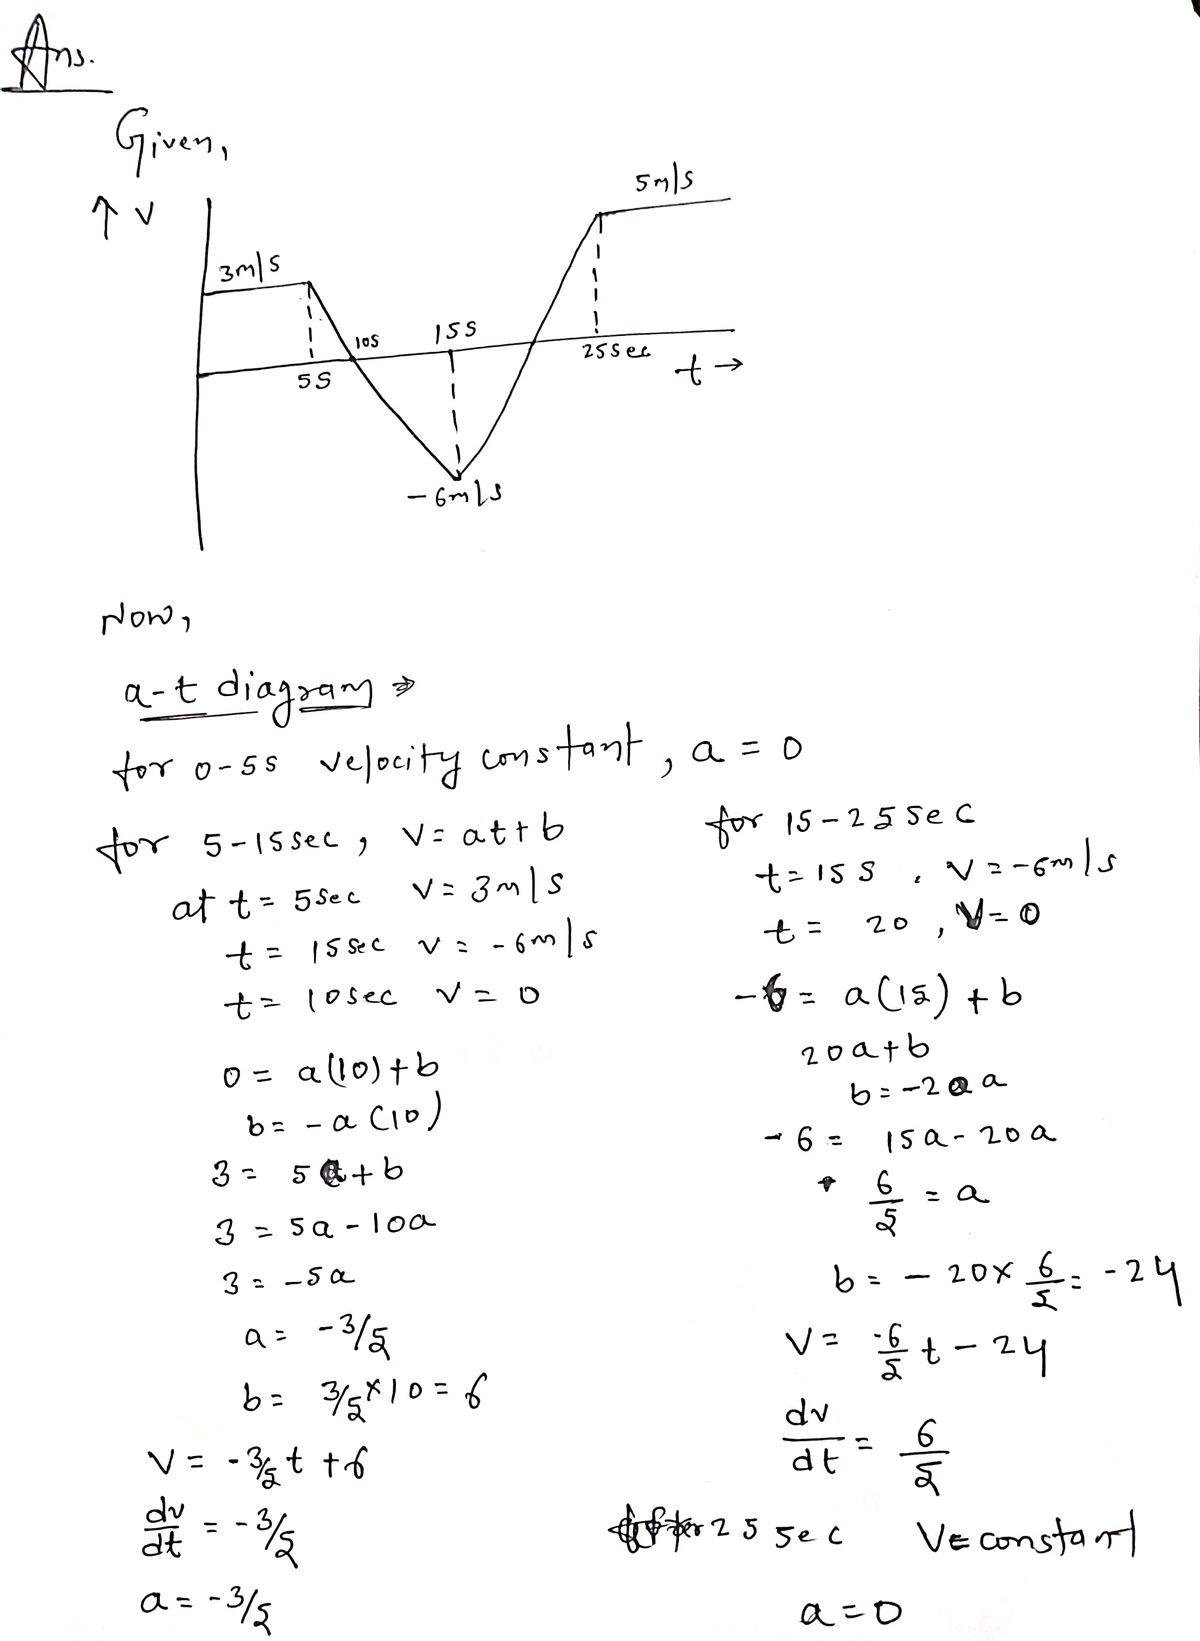 Ans.
Given,
↑ V
5m/s
3m/s
10S
15S
5S
25Sec
t →
-6m/s
Now,
a-t diagram ⇒
for 0-5s velocity constant, a = 0
for 5-15sec, V = at+b
at t = 5sec V = 3m/s
t = 15sec V = -6m/s
t = 10sec V = 0
0 = a(10)+b
b = -a(10)
3 = 5a+b
3 = 5a-10a
3 = -5a
a = -3/5
b = 3/5×10 = 6
V = -3/5t +6
dv/dt = -3/5
a = -3/5
for 15-25sec
t = 15S, V = -6m/s
t = 20, V = 0
-6 = a(15)+b
20a+b
b = -20a
-6 = 15a-20a
6/5 = a
b = -20× 6/5 = -24
V = -6/5 t - 24
dv/dt = 6/5
After 25 sec V= constant
a = 0